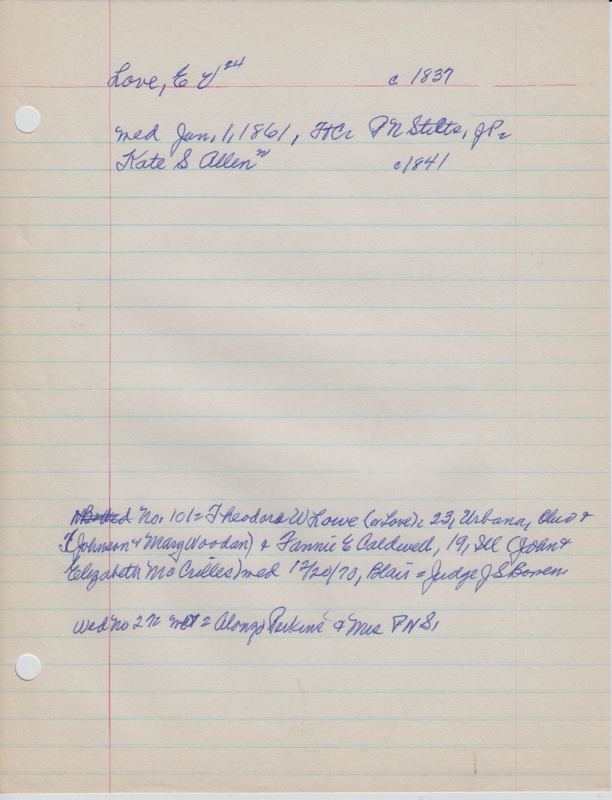 Love, E V 24 c 1837
wed Jan, 1, 1861, FtC P N Stilts, JP
Kate S Allen 20 c 1841
No. 101 = Theodore W Lowe (or Love), 23, Urbana, Ohio +
Johnson + Mary Woodan) + Fannie E Caldwell, 19, Ill (John +
Elizabeth McCrilles) wed 12/20/73, Blair = Judge J S Bowen
Wed No 272 wit = Alonzo Perkins + Mrs P N S,